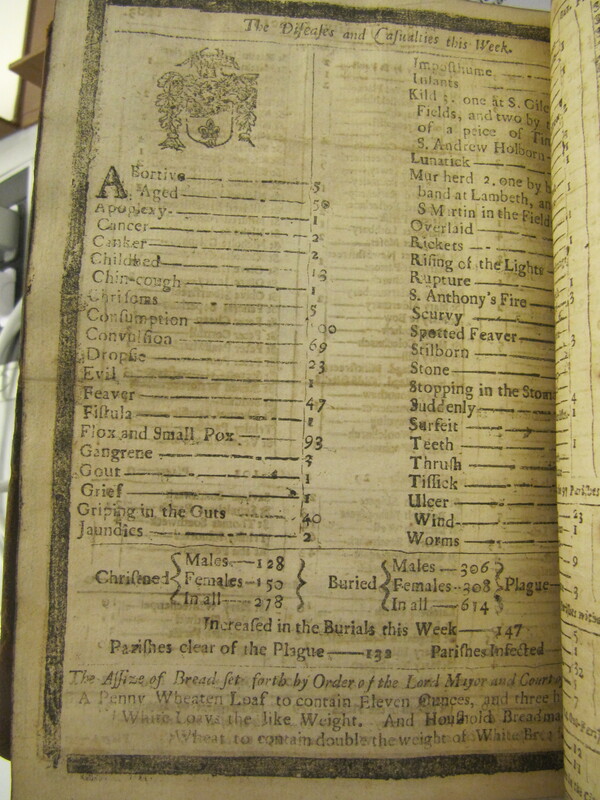 The Diſeaſes and Caſualties this Week.
ABortive — 5
Aged — 50
Apoplexy — 1
Cancer — 2
Canker — 2
Childbed — 13
Chin-cough — 1
Chriſoms — 5
Conſumption — 00
Convulſion — 69
Dropſie — 23
Evil — 1
Feaver — 47
Fiſtula — 1
Flox and Small Pox — 93
Gangrene — 3
Gout — 1
Grief — 1
Griping in the Guts — 40
Jaundies — 2
Impoſthume
Infants
Kild 3. one at S. Gile
Fields, and two by
of a peice of Tim
S. Andrew Holborn
Lunatick
Murherd 2. one by h
band at Lambeth, an
S Martin in the Field
Overlaid
Rickets
Riſing of the Lights
Rupture
S. Anthony's Fire
Scurvy
Spotted Feaver
Stilborn
Stone
Stopping in the Stom
Suddenly
Surfeit
Teeth
Thruſh
Tiſſick
Ulcer
Wind
Worms
Chriſtened
Males — 128
Females — 150
In all — 278
Buried
Males — 306
Females — 308
In all — 614
Plague
Increaſed in the Burials this Week — 147
Pariſhes clear of the Plague — 132 Pariſhes Infected
The Aſſize of Bread ſet forth by Order of the Lord Mayor and Court of
A Penny Wheaten Loaf to contain Eleven Ounces, and three h
White Loaves the like Weight. And Houſhold Bread ma
Wheat to contain double the weight of White Brea